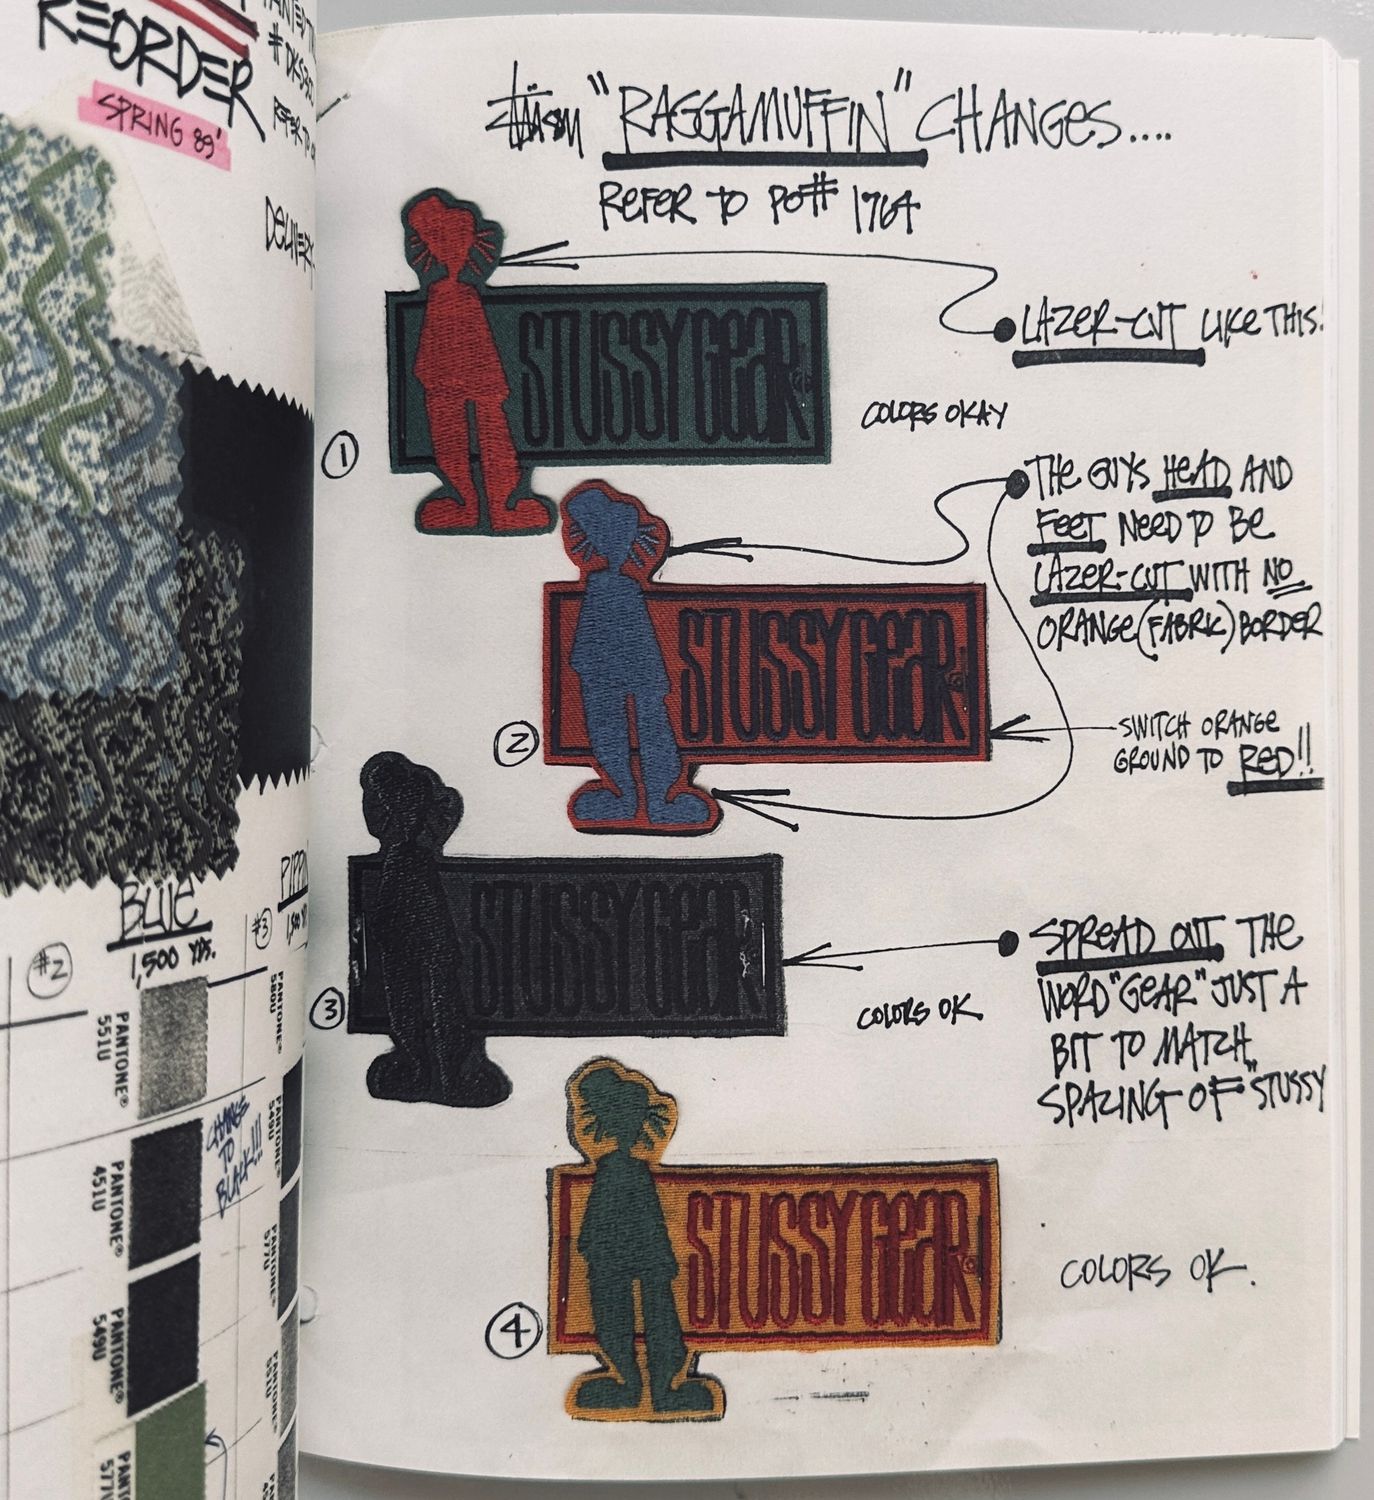 REORDER
SPRING 89'
BLUE
1,500 YDS.
#2
#3
PANTONE®
551U
CHANGE
TO
BLACK!!!
PANTONE®
451U
PANTONE®
549U
PANTONE®
580U
PANTONE®
549U
PANTONE®
577U
PANTONE®
551U
Stüssy "RAGGAMUFFIN" CHANGES....
REFER TO PO# 1764
LAZER-CUT LIKE THIS!
STUSSY GEAR
COLORS OKAY
1
THE GUYS HEAD AND
FEET NEED TO BE
LAZER-CUT WITH NO
ORANGE (FABRIC) BORDER
STUSSY GEAR
2
SWITCH ORANGE
GROUND TO RED!!
STUSSY GEAR
3
COLORS OK
SPREAD OUT THE
WORD "GEAR" JUST A
BIT TO MATCH
SPAZING OF "STUSSY
STUSSY GEAR
4
COLORS OK.